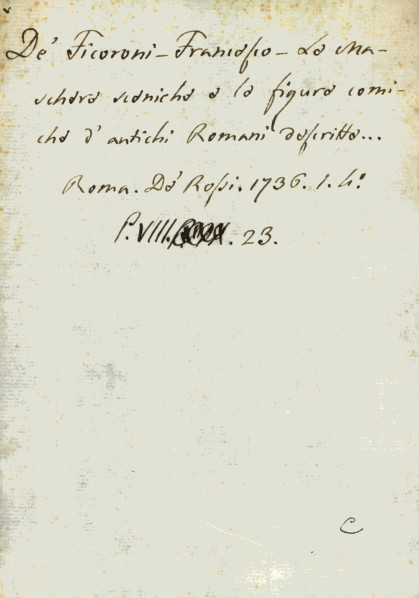 De' Ficoroni - Francesco - Le Ma-
schere sceniche e le figure comi-
che d' antichi Romani descritte...
Roma. De' Rossi. 1736. 1. 4.º
P. VIII. 23.
C